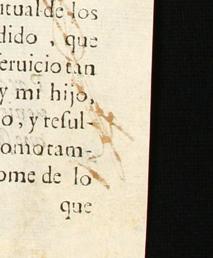 itual de los
dido , que
eruicio tan
y mi hijo,
o , y resul-
omo tam-
ome de lo
que